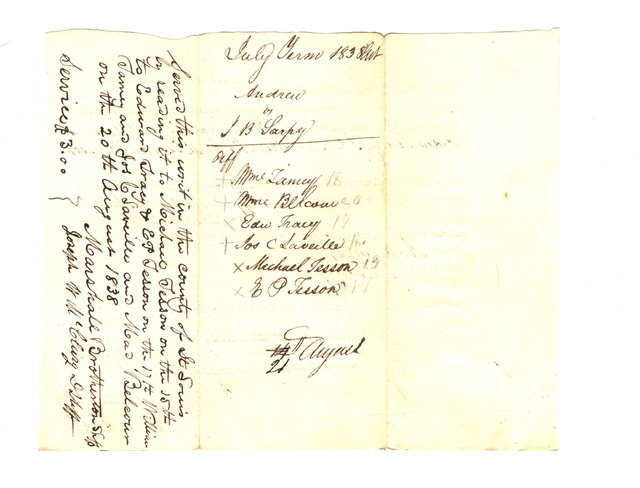 July Term 1838
Andrew
vs
J B Sarpy
Off
+ Mme
+ Mme Belcour 20
x Edw Tracy 17
+ Jos C Laveille 18
x Michael Tesson 15
x E P Tesson 17
21 August
Served this writ in the county of St Louis
by reading it to Michael Tesson on the 15th
to Edward Tracy & E P Tesson on the 17th William
James and Jos C Laveille and Mad Belcour
on the 20th August 1838
Marshall Brotherton Shff
Service $3.00 } Joseph W McClurg D Shff